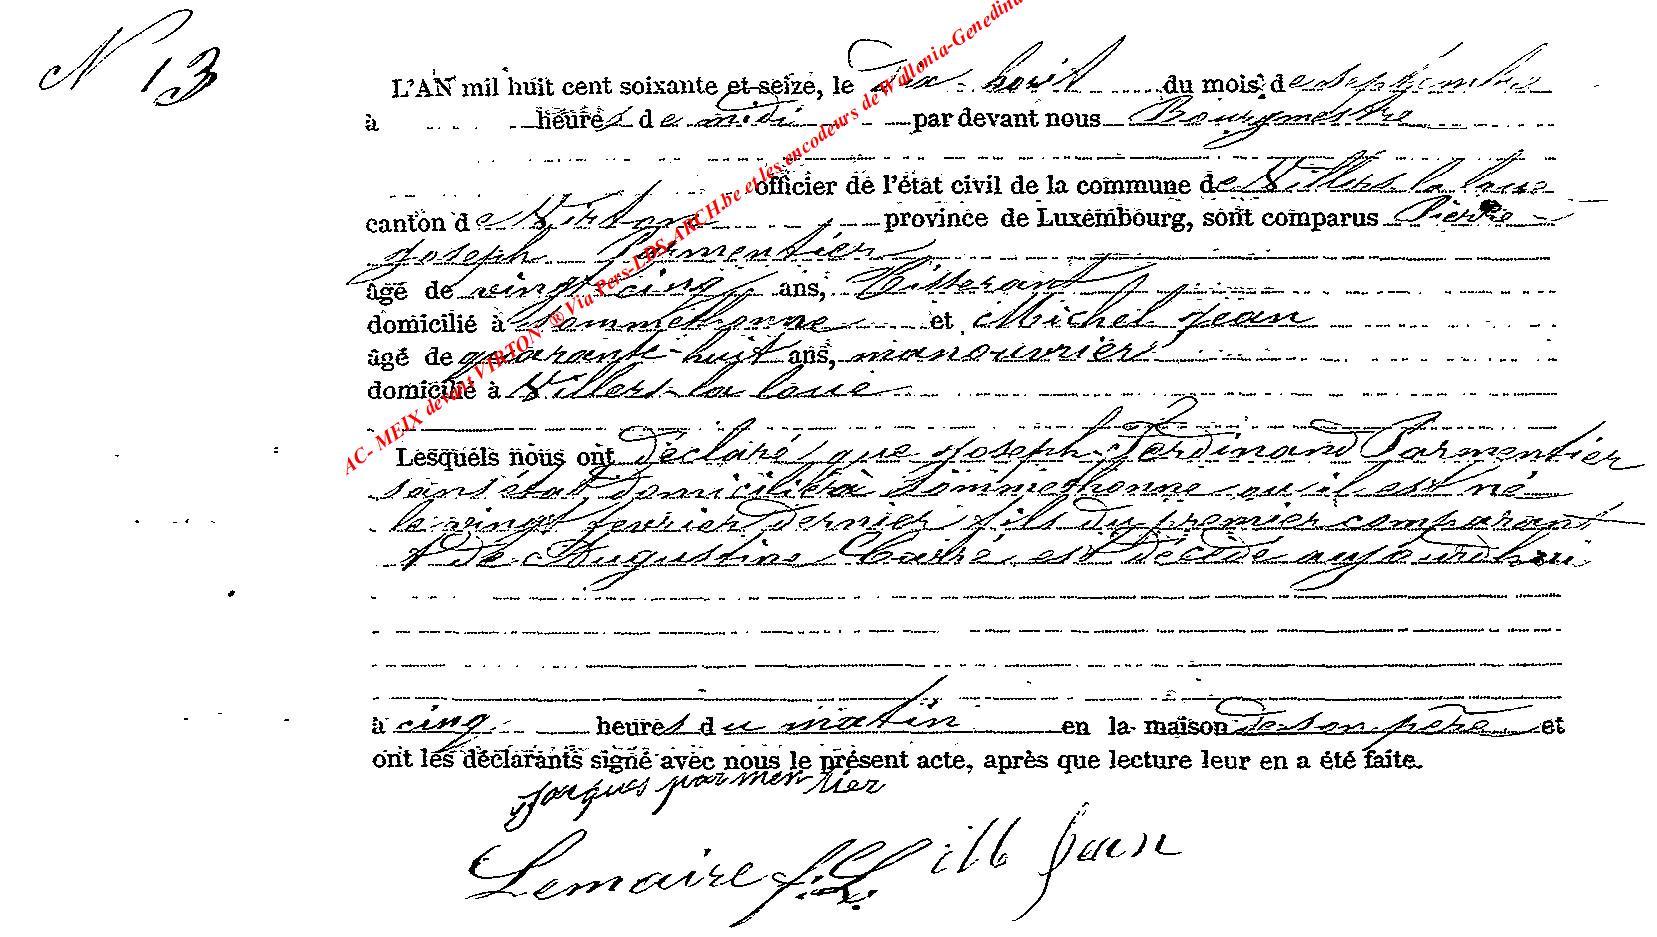 N 13
L'AN mil huit cent soixante et seize, le Dix-huit du mois de septembre
à heures de midi par devant nous Bourgmestre
officier de l'état civil de la commune de Villers la loue
canton de Virton province de Luxembourg, sont comparus Pierre
Joseph Parmentier
âgé de vingt cinq ans, Tisserant
domicilié à Sommethonne et Michel Jean
âgé de quarante-huit ans, manouvrier
domicilié à Villers-la loue
Lesquels nous ont déclaré que Joseph Ferdinand Parmentier
sans état, domicilié à Sommethonne où il est né
le vingt fevrier dernier, fils du premier comparant
& de Augustine Carré est décédé aujourd'hui
à cinq heures du matin en la maison de son père et
ont les déclarants signé avec nous le présent acte, après que lecture leur en a été faite.
Jacques parmentier
Lemaire f. Jean
AC- MEIX devant VIRTON ® Via Pers-LDS-ARCH.be et les encodeurs de Wallonia-Genedina